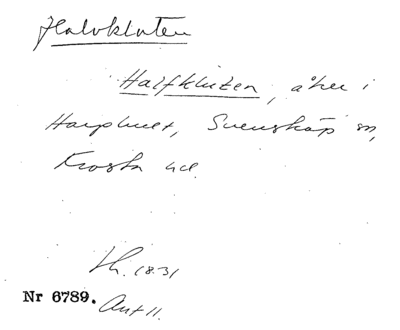 Halvkluten
Halfkluten, åker i
Harphult, Svensköp sn,
Frosta hd.
Lh. 1831
Nr 6789. Ant 11.